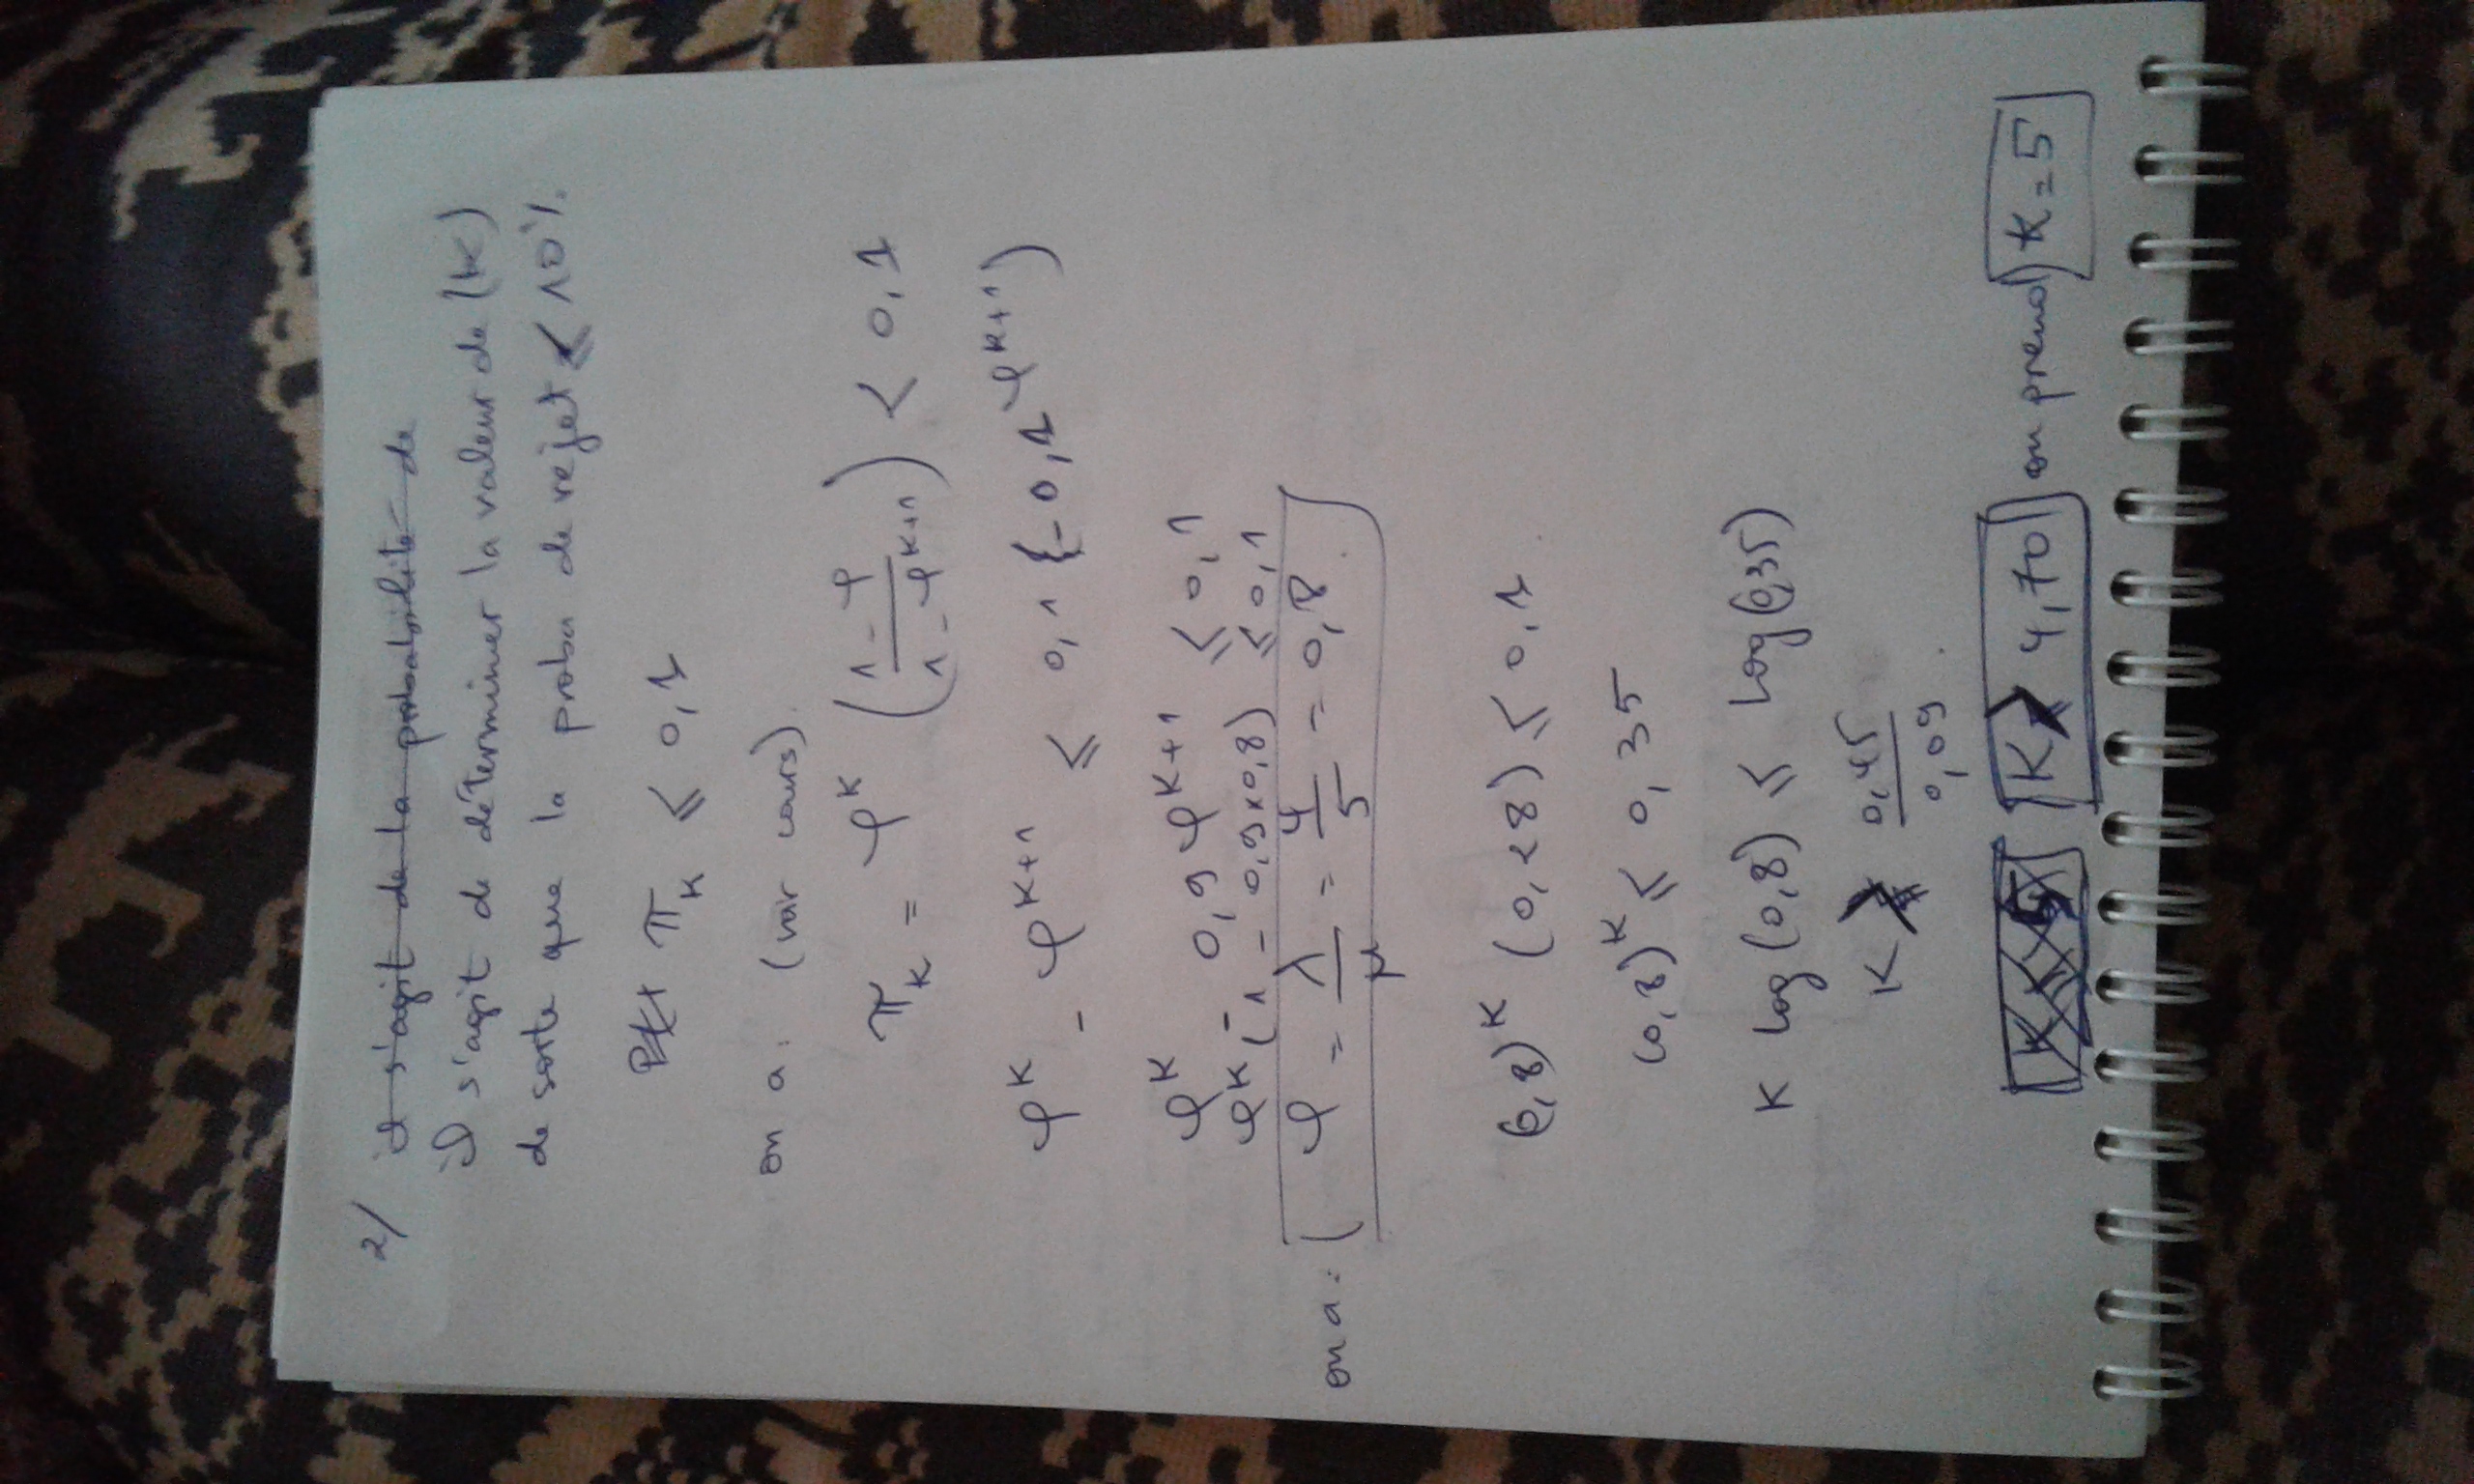 2/ il s'agit de la probabilité de
il s'agit de déterminer la valeur de (K)
de sorte que la proba de rejet ⩽ 10%.
π_K ⩽ 0,1
on a : (voir cours).
π_K = φ^K ((1 - φ)/(1 - φ^{K+1})) < 0,1
φ^K - φ^{K+1} ⩽ 0,1 (- 0,1 φ^{K+1})
φ^K - 0,9 φ^{K+1} ⩽ 0,1
φ^K (1 - 0,9 x 0,8) ⩽ 0,1
on a : ( φ = λ/μ = 4/5 = 0,8. )
(0,8)^K (0,28) ⩽ 0,1
(0,8)^K ⩽ 0,35
K log(0,8) ⩽ log(0,35)
K ⩾ 0,45/0,09.
K > 4,70 on prend K = 5